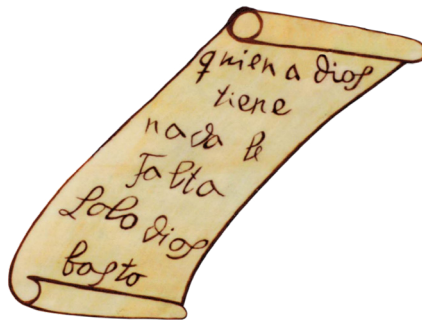 quien a dios
tiene
nada le
Falta
Solo dios
basta